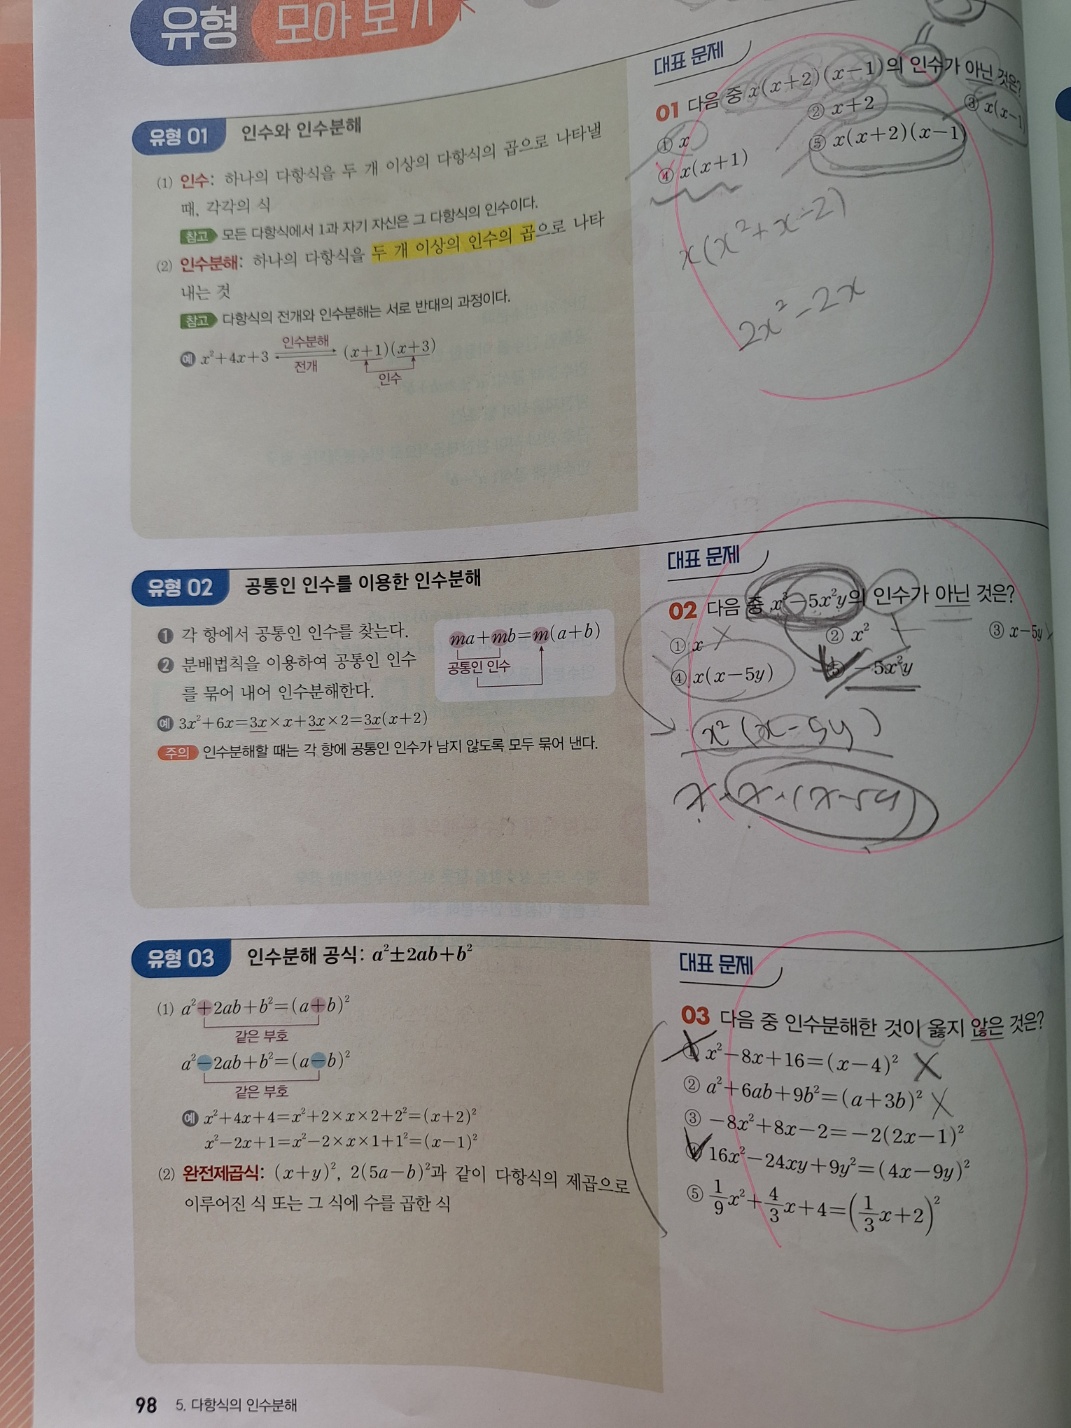 유형 모아 보기
유형 01 인수와 인수분해
(1) 인수: 하나의 다항식을 두 개 이상의 다항식의 곱으로 나타낼
때, 각각의 식
참고 모든 다항식에서 1과 자기 자신은 그 다항식의 인수이다.
(2) 인수분해: 하나의 다항식을 두 개 이상의 인수의 곱으로 나타
내는 것
참고 다항식의 전개와 인수분해는 서로 반대의 과정이다.
예 x²+4x+3 인수분해 전개 (x+1)(x+3)
인수
대표 문제
01 다음 중 x(x+2)(x-1)의 인수가 아닌 것은?
① x ② x+2 ③ x(x-1)
④ x(x+1) ⑤ x(x+2)(x-1)
x(x²+x-2)
2x²-2x
유형 02 공통인 인수를 이용한 인수분해
❶ 각 항에서 공통인 인수를 찾는다.
❷ 분배법칙을 이용하여 공통인 인수
를 묶어 내어 인수분해한다.
ma+mb=m(a+b)
공통인 인수
예 3x²+6x=3x×x+3x×2=3x(x+2)
주의 인수분해할 때는 각 항에 공통인 인수가 남지 않도록 모두 묶어 낸다.
대표 문제
02 다음 중 x³-5x²y의 인수가 아닌 것은?
① x ② x² ③ x-5y
④ x(x-5y) ⑤ -5x²y
x²(x-5y)
유형 03 인수분해 공식: a²±2ab+b²
(1) a²+2ab+b²=(a+b)²
같은 부호
a²-2ab+b²=(a-b)²
같은 부호
예 x²+4x+4=x²+2×x×2+2²=(x+2)²
x²-2x+1=x²-2×x×1+1²=(x-1)²
(2) 완전제곱식: (x+y)², 2(5a-b)²과 같이 다항식의 제곱으로
이루어진 식 또는 그 식에 수를 곱한 식
대표 문제
03 다음 중 인수분해한 것이 옳지 않은 것은?
① x²-8x+16=(x-4)²
② a²+6ab+9b²=(a+3b)²
③ -8x²+8x-2=-2(2x-1)²
④ 16x²-24xy+9y²=(4x-9y)²
⑤ 1/9x²+4/3x+4=(1/3x+2)²
98 5. 다항식의 인수분해